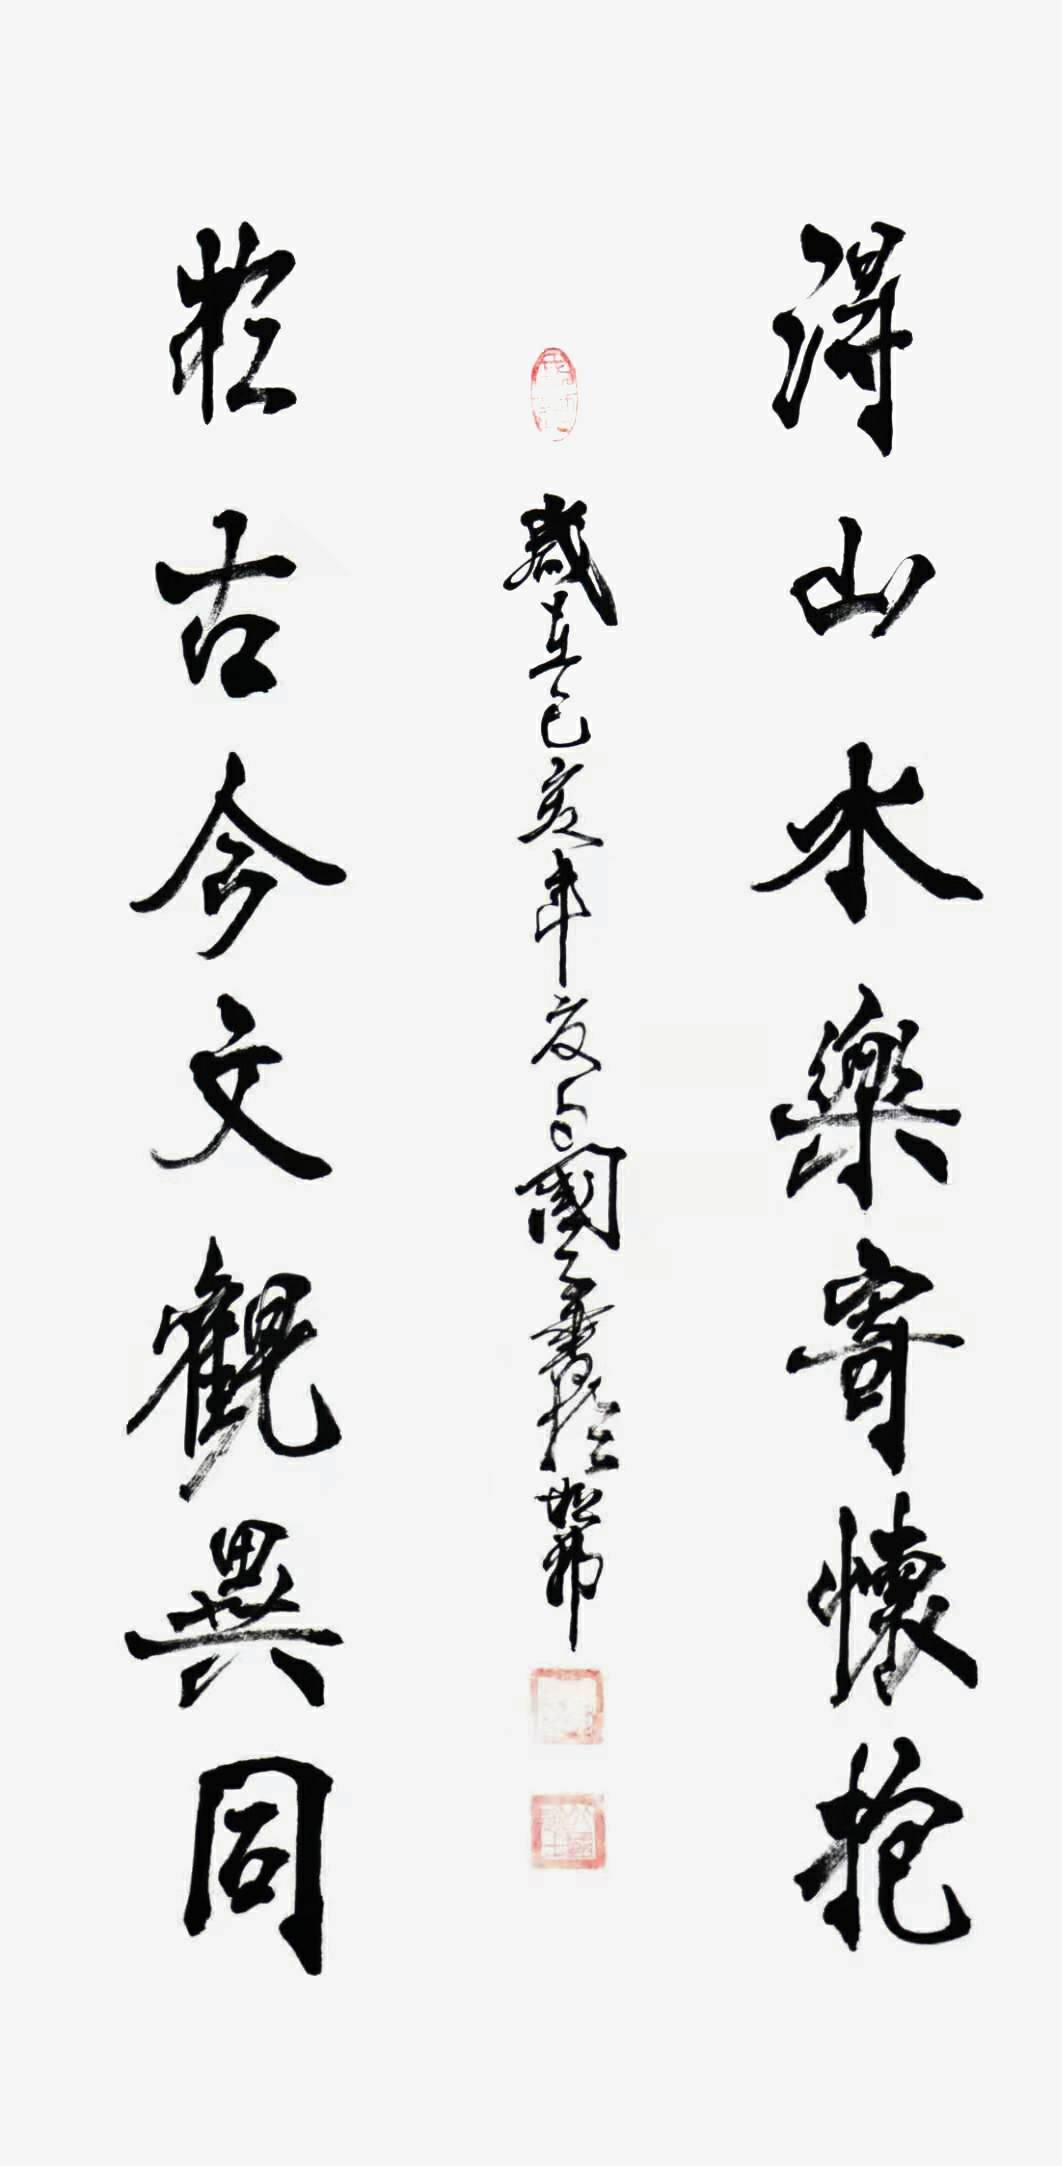 得山水樂寄懷抱
歲在己亥年夏月國
於古今文觀異同